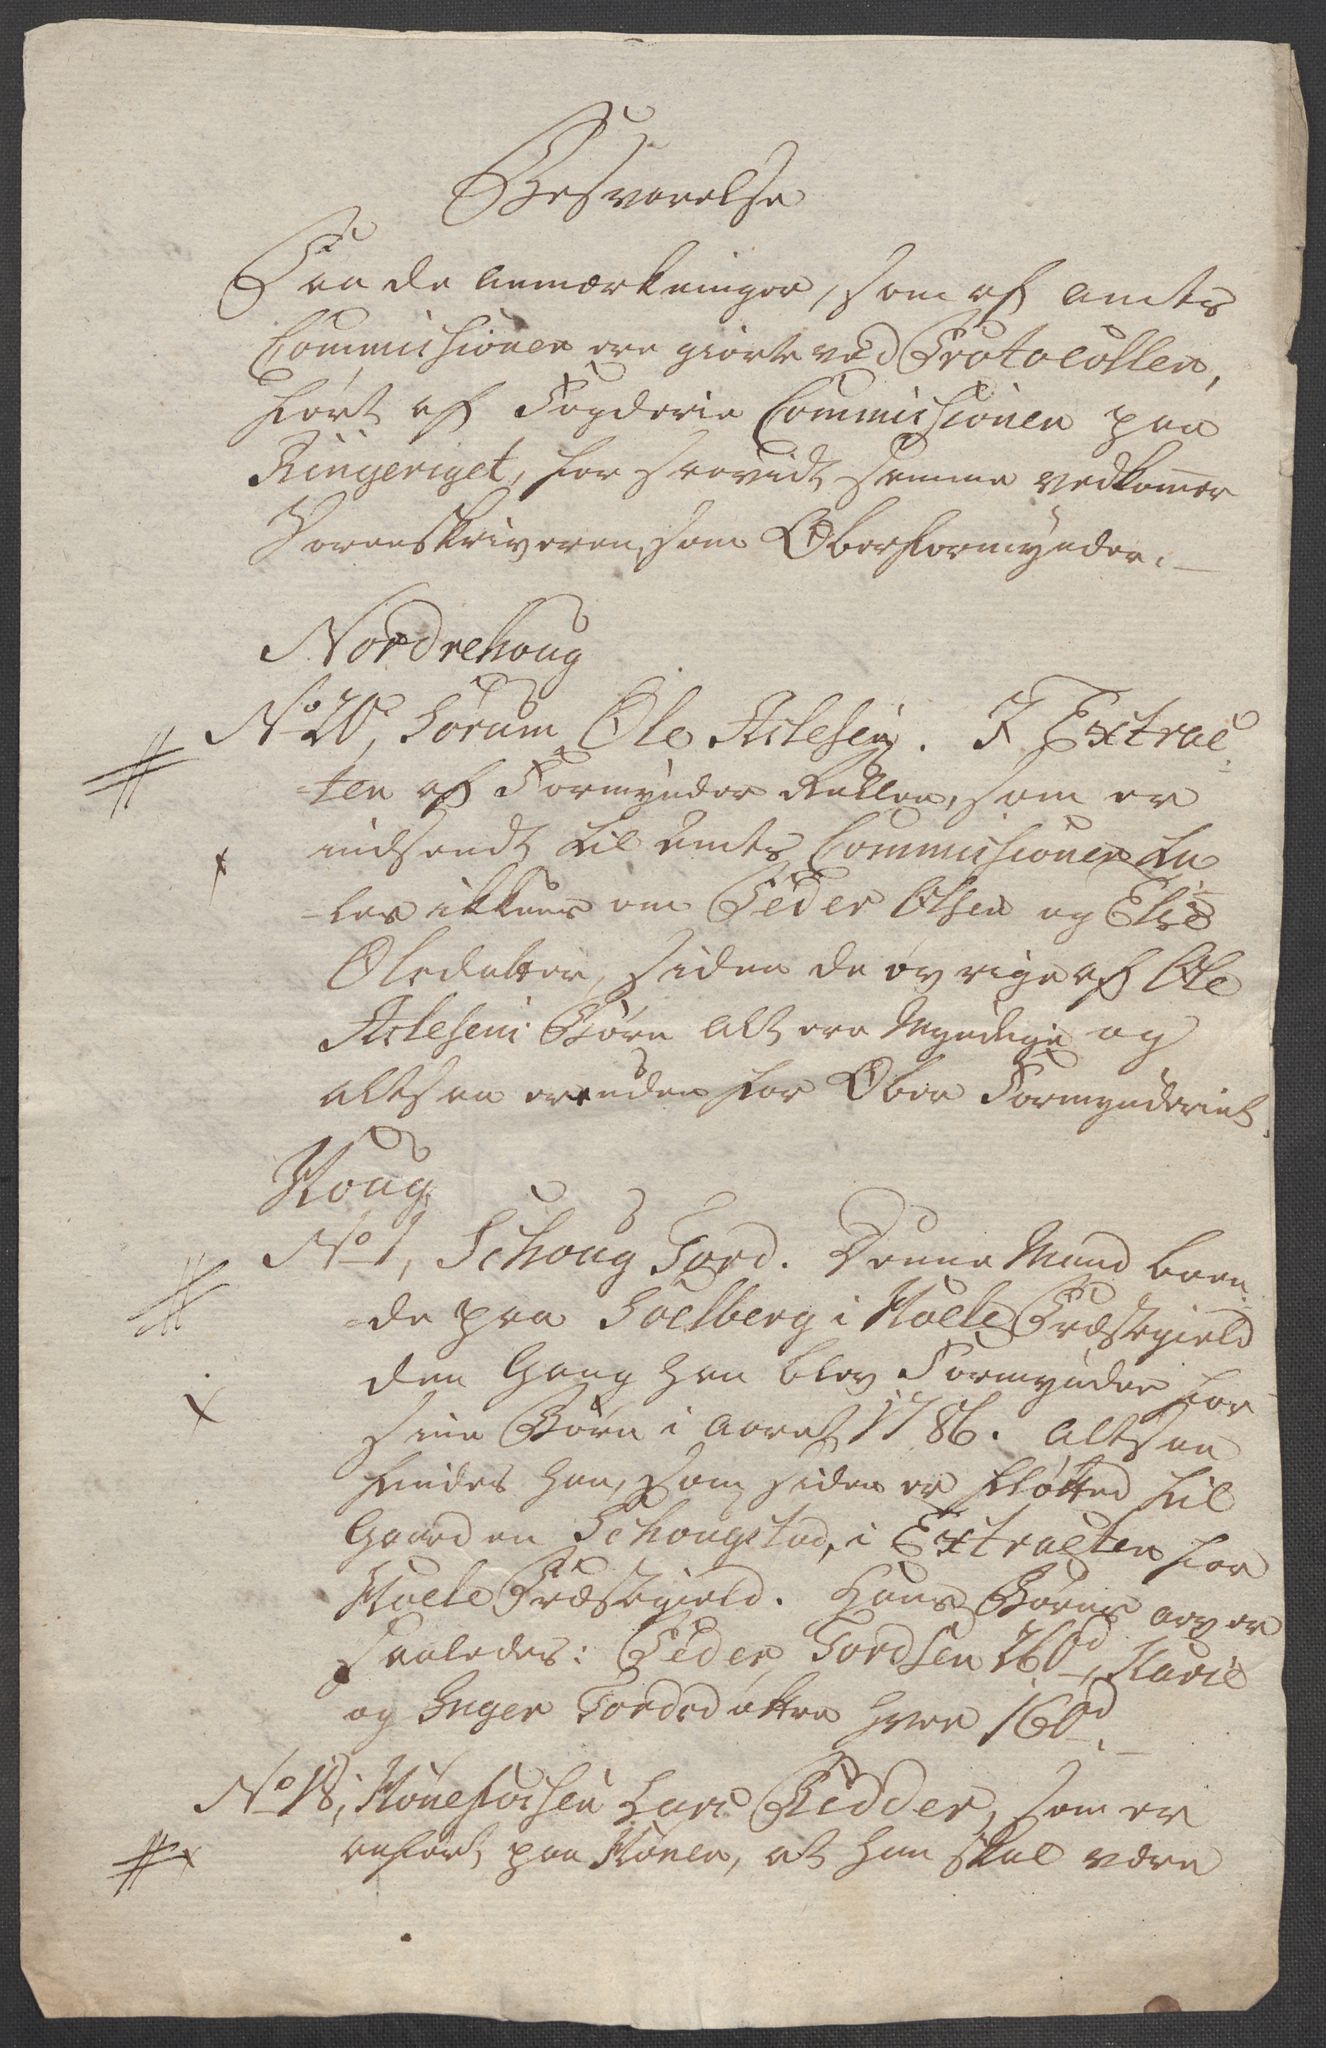 Besvarelse
Paa de Anmærkninger, som af Amts
Commissionen ere giorte ved Protocollen,
ført af Fogderie Commissionen paa
Ringeriget, for saavidt samme vedkommer
Sorenskriveren, som Oberformynder.
Nordrehoug
No 20, Sørum, Ole Aslesen. I Extrac-
ten af Formynder Rullen, som er
indsendt til Amts Commissionen ta-
les ikkuns om Peder Olsen og Elie
Olsdatter, siden de øvrige af Ole
Aslesens Børn alt ere Myndige og
altsaa er uden for Ober Formynderiet.
Houg
No 1, Schoug Tord. Denne Mand boen-
de paa Soelberg i Hoele Præstegield
den Gang han blev Formynder for
sine Børn i Aaret 1786. Altsaa
findes han, som siden er fløtted til
Gaarden Schougstad, i Extracten for
Hoele Præstegield. Hans Børns arv er
saaledes: Peder Tordsen 260d, Marie
og Inger Tordsdøttre hver 160d.
No 18, Hønefossen Lars Bidder, som er
anført paa Hønen, at han skal være